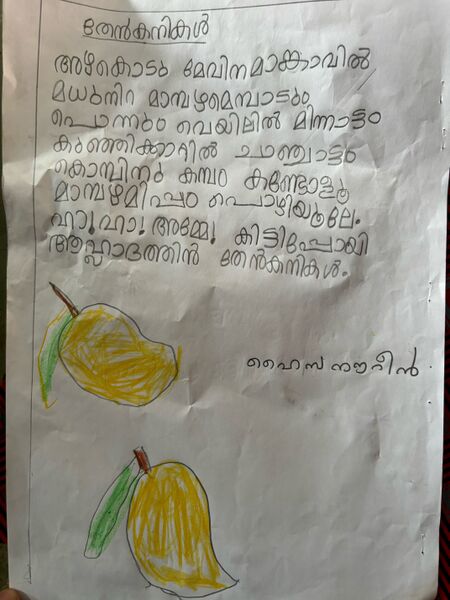 തേൻകനികൾ
അഴകൊടു മേവിന മാങ്കാവിൽ
മധുനിറ മാമ്പഴമെമ്പാടും
പൊന്നും വെയിലിൽ മിന്നാട്ടം
കുഞ്ഞിക്കാറ്റിൽ ചാഞ്ചാട്ടം
കൊമ്പിനു കമ്പം കണ്ടോളൂ
മാമ്പഴമിപ്പം പൊഴിയൂലേ.
ഹാ! ഹാ! അമ്മേ! കിട്ടിപ്പോയി
ആഹ്ലാദത്തിൻ തേൻകനികൾ.
ഹൈസ നൗറീൻ